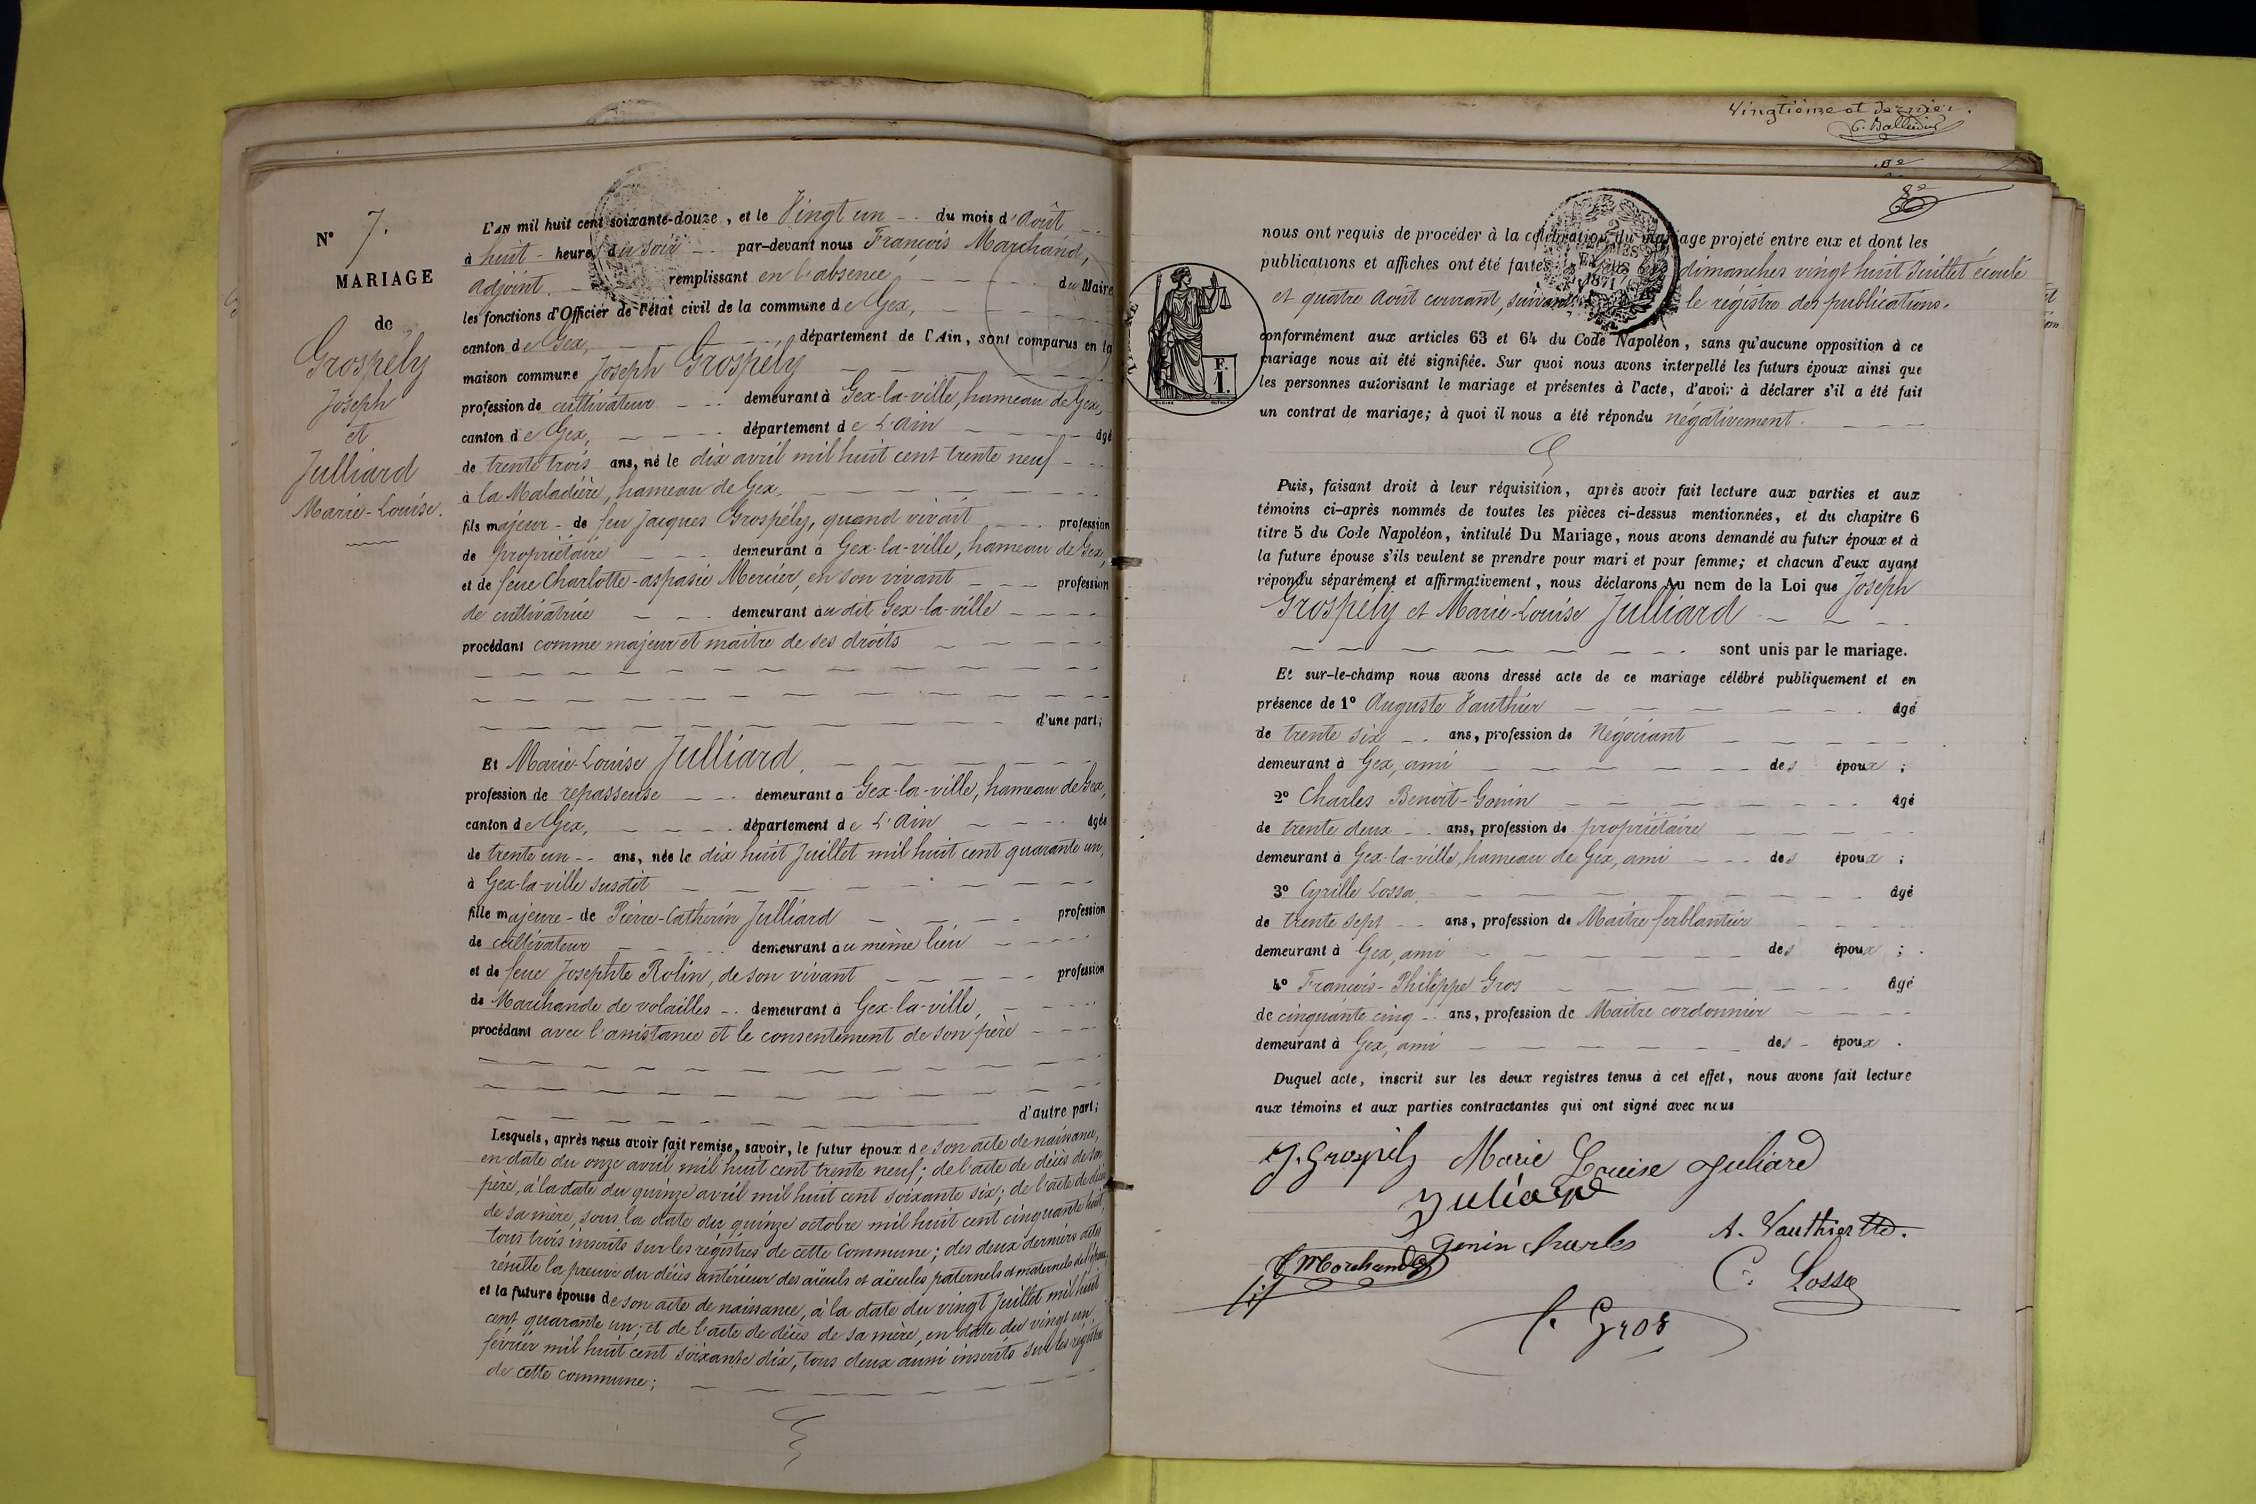 N° 7.
MARIAGE
de
Grospély
Joseph
et
Julliard
Marie-Louise.
L'AN mil huit cent soixante-douze, et le Vingt un du mois d'Août
à huit heures du soir par-devant nous François Marchand,
adjoint remplissant en l'absence du Maire
les fonctions d'Officier de l'état civil de la commune de Gex,
canton de Gex, département de l'Ain, sont comparus en la
maison commune Joseph Grospély
profession de cultivateur demeurant à Gex-la-ville, hameau de Gex,
canton de Gex, département de L'Ain âgé
de trente trois ans, né le dix avril mil huit cent trente neuf
à la Maladière, hameau de Gex,
fils majeur de feu Jacques Grospély, quand vivait profession
de propriétaire demeurant à Gex-la-ville, hameau de Gex,
et de feue Charlotte-aspasie Mercier, en son vivant profession
de cultivatrice demeurant au dit Gex-la-ville
procédant comme majeur et maître de ses droits
d'une part;
Et Marie-Louise Julliard,
profession de repasseuse demeurant à Gex-la-ville, hameau de Gex,
canton de Gex, département de L'Ain âgée
de trente un ans, née le dix huit Juillet mil huit cent quarante un,
à Gex-la-ville susdit
fille majeure de Pierre-Catherin Julliard profession
de cultivateur demeurant au même lieu
et de feue Josephte Rolin, de son vivant profession
de Marchande de volailles demeurant à Gex-la-ville,
procédant avec l'assistance et le consentement de son père
d'autre part;
Lesquels, après nous avoir fait remise, savoir, le futur époux de son acte de naissance,
en date du onze avril mil huit cent trente neuf; de l'acte de décès de son
père, à la date du quinze avril mil huit cent soixante six; de l'acte de décès
de sa mère, sous la date du quinze octobre mil huit cent cinquante huit,
tous trois inscrits sur les régistres de cette Commune; des deux derniers actes
résulte la preuve du décès antérieur des aïeuls et aïeules paternels et maternels de l'époux,
et la future épouse de son acte de naissance, à la date du vingt Juillet mil huit
cent quarante un; et de l'acte de décès de sa mère, en date du vingt un
février mil huit cent soixante dix, tous deux aussi inscrits sur les régistres
de cette commune;
Vingtième et dernier.
8e
nous ont requis de procéder à la célébration du mariage projeté entre eux et dont les
publications et affiches ont été faites les dimanches vingt huit Juillet écoulé
et quatre Août courant, suivant le régistre des publications.
1871
F.
1.
conformément aux articles 63 et 64 du Code Napoléon, sans qu'aucune opposition à ce
mariage nous ait été signifiée. Sur quoi nous avons interpellé les futurs époux ainsi que
les personnes autorisant le mariage et présentes à l'acte, d'avoir à déclarer s'il a été fait
un contrat de mariage; à quoi il nous a été répondu négativement.
Puis, faisant droit à leur réquisition, après avoir fait lecture aux parties et aux
témoins ci-après nommés de toutes les pièces ci-dessus mentionnées, et du chapitre 6
titre 5 du Code Napoléon, intitulé Du Mariage, nous avons demandé au futur époux et à
la future épouse s'ils veulent se prendre pour mari et pour femme; et chacun d'eux ayant
répondu séparément et affirmativement, nous déclarons Au nom de la Loi que Joseph
Grospély et Marie-Louise Julliard
sont unis par le mariage.
Et sur-le-champ nous avons dressé acte de ce mariage célébré publiquement et en
présence de 1° Auguste Vauthier âgé
de trente six ans, profession de Négociant
demeurant à Gex, ami des époux;
2° Charles Benoit-Gonin âgé
de trente deux ans, profession de propriétaire
demeurant à Gex-la-ville, hameau de Gex, ami des époux;
3° Cyrille Lossa, âgé
de trente sept ans, profession de Maître ferblantier
demeurant à Gex, ami des époux;
4° François-Philippe Gros âgé
de cinquante cinq ans, profession de Maître cordonnier
demeurant à Gex, ami des époux.
Duquel acte, inscrit sur les deux registres tenus à cet effet, nous avons fait lecture
aux témoins et aux parties contractantes qui ont signé avec nous
J. Grospély Marie Louise Juliard
Juliard
Gonin Charles A. Vauthier
F Marchand C. Lossa
f. Gros